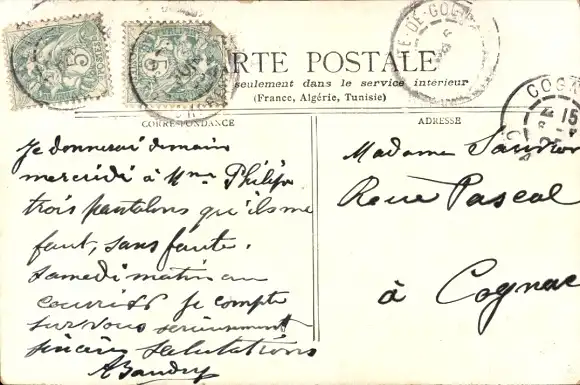 CARTE POSTALE
seulement dans le service intérieur
(France, Algérie, Tunisie)
CORRESPONDANCE
ADRESSE
Je donnerai demain
mercredi à Mme Philipp
trois pantalons qu'ils me
faut, sans faute.
samedi matin au
courrier je compte
sur vous serieusement
sincères salutations
ABaudry
Madame
Rue Pascal
à Cognac
5
5
E-DE-GOL
COGN
15